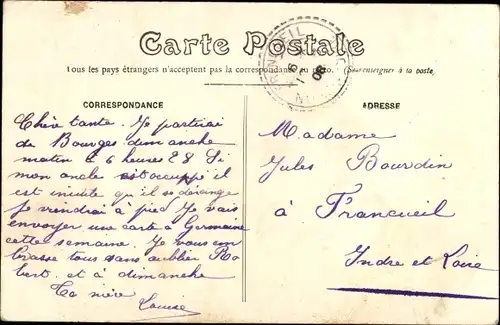 Carte Postale
Tous les pays étrangers n'acceptent pas la correspondance au recto. (Se renseigner à la poste
CORRESPONDANCE
ADRESSE
FRANCUEIL
6
08
Chère tante. Je partirai
de Bourges dimanche
matin à 6 heures 28 Si
mon oncle est occupé il
est inutile qu'il se dérange
je viendrai à pied. Je vais
envoyer une carte à Germaine
cette semaine. Je vous em
brasse tous sans oublier Ro
bert. et à dimanche
Ta nièce
Louise
Madame
Jules Bourdin
à Francueil
Indre et Loire